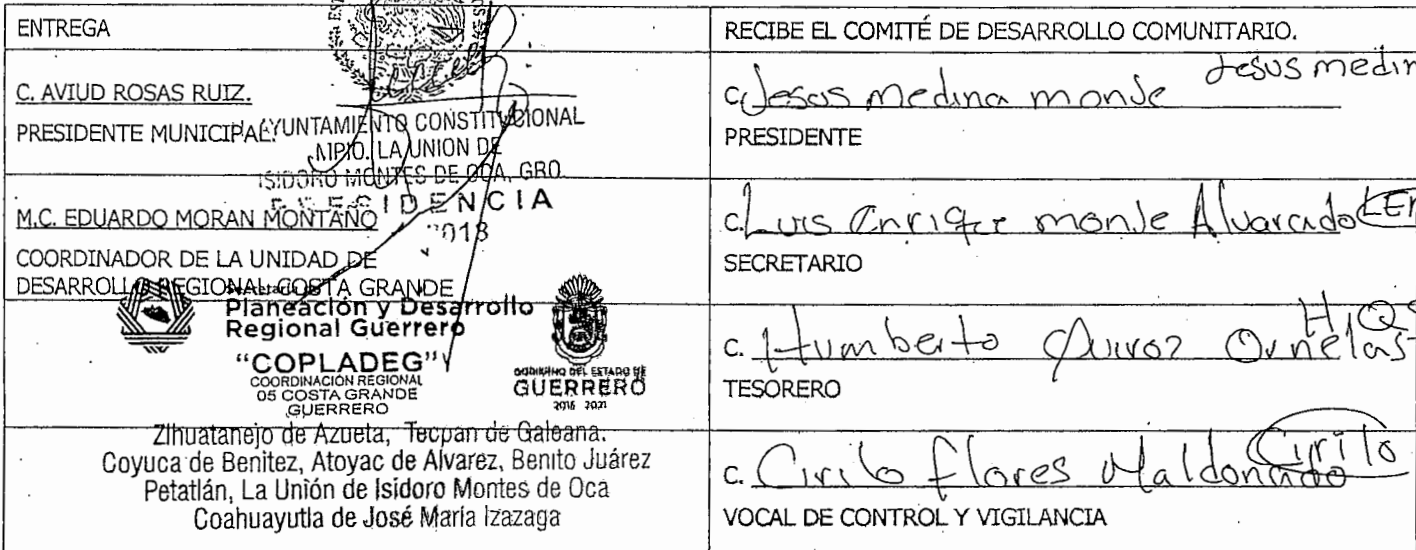 ENTREGA
C. AVIUD ROSAS RUIZ.
PRESIDENTE MUNICIPAL.
AYUNTAMIENTO CONSTITUCIONAL
MPIO. LA UNION DE
ISIDORO MONTES DE OCA, GRO.
PRESIDENCIA
2018
M.C. EDUARDO MORAN MONTAÑO
COORDINADOR DE LA UNIDAD DE
DESARROLLO REGIONAL COSTA GRANDE
Planeación y Desarrollo
Regional Guerrero
“COPLADEG”
COORDINACIÓN REGIONAL
05 COSTA GRANDE
GUERRERO
GOBIERNO DEL ESTADO DE
GUERRERO
Zihuatanejo de Azueta, Tecpan de Galeana.
Coyuca de Benitez, Atoyac de Alvarez, Benito Juárez
Petatlán, La Unión de Isidoro Montes de Oca
Coahuayutla de José María Izazaga
RECIBE EL COMITÉ DE DESARROLLO COMUNITARIO.
C. Jesus medina monJe
Jesus medin
PRESIDENTE
C. Luis Enrique monJe Alvarado
SECRETARIO
C. Humberto Quiroz Ornelas
TESORERO
C. Cirilo flores Maldonado Cirilo
VOCAL DE CONTROL Y VIGILANCIA